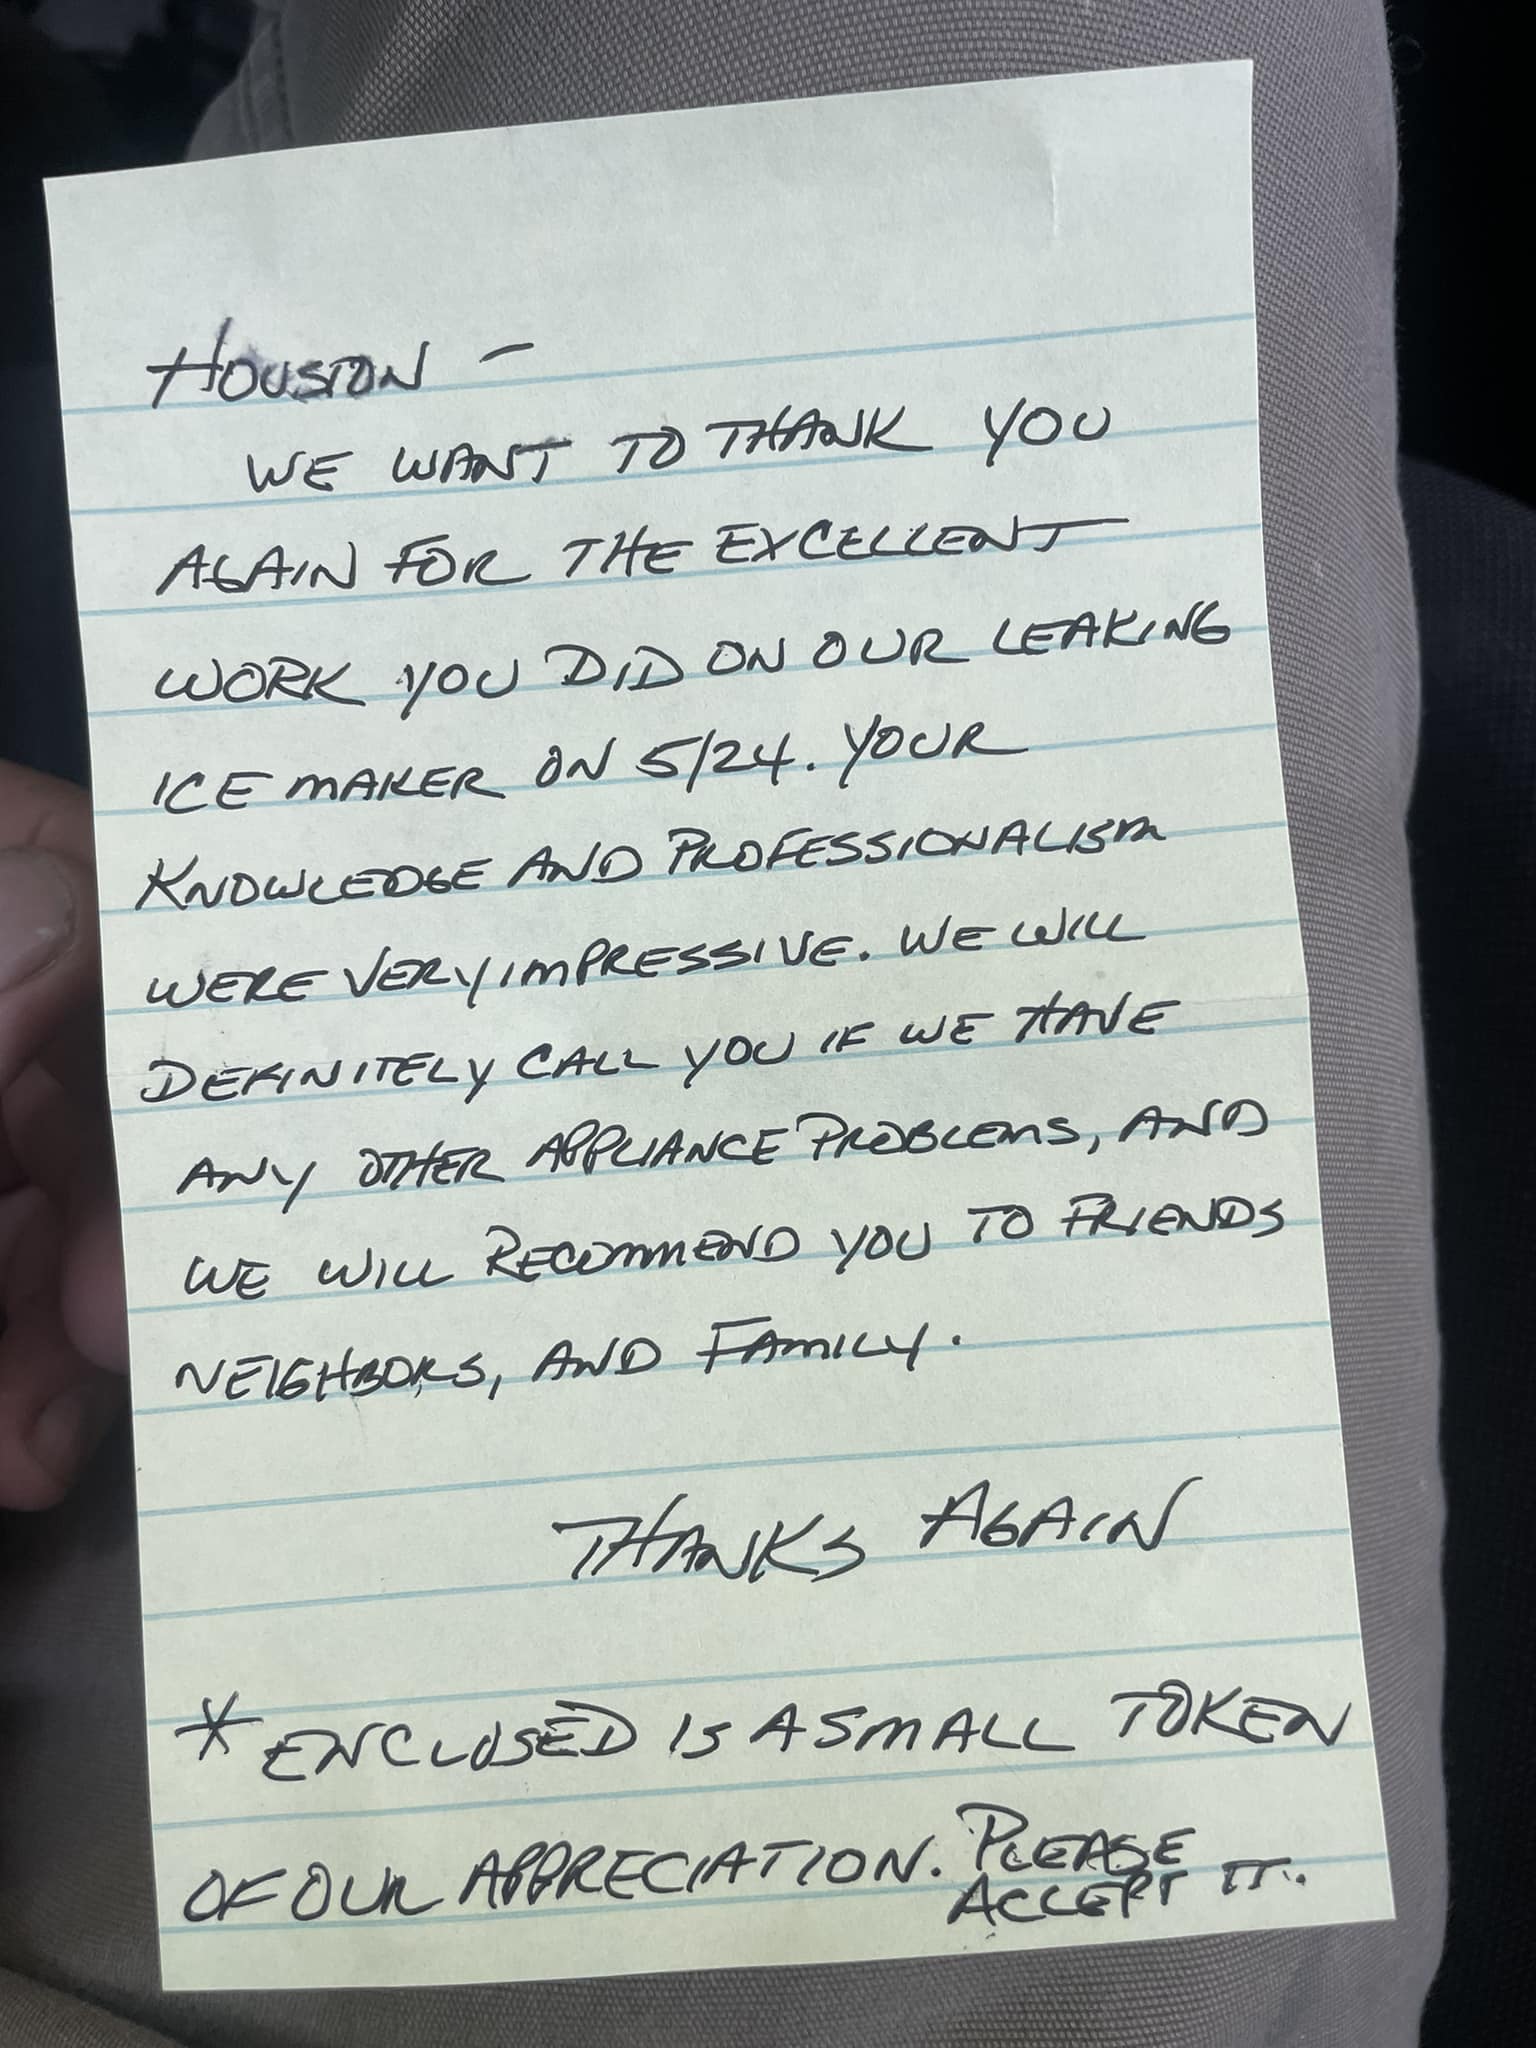 HOUSTON –
WE WANT TO THANK YOU
AGAIN FOR THE EXCELLENT
WORK YOU DID ON OUR LEAKING
ICE MAKER ON 5/24. YOUR
KNOWLEDGE AND PROFESSIONALISM
WERE VERY IMPRESSIVE. WE WILL
DEFINITELY CALL YOU IF WE HAVE
ANY OTHER APPLIANCE PROBLEMS, AND
WE WILL RECOMMEND YOU TO FRIENDS
NEIGHBORS, AND FAMILY.
THANKS AGAIN
* ENCLOSED IS A SMALL TOKEN
OF OUR APPRECIATION. PLEASE
ACCEPT IT.